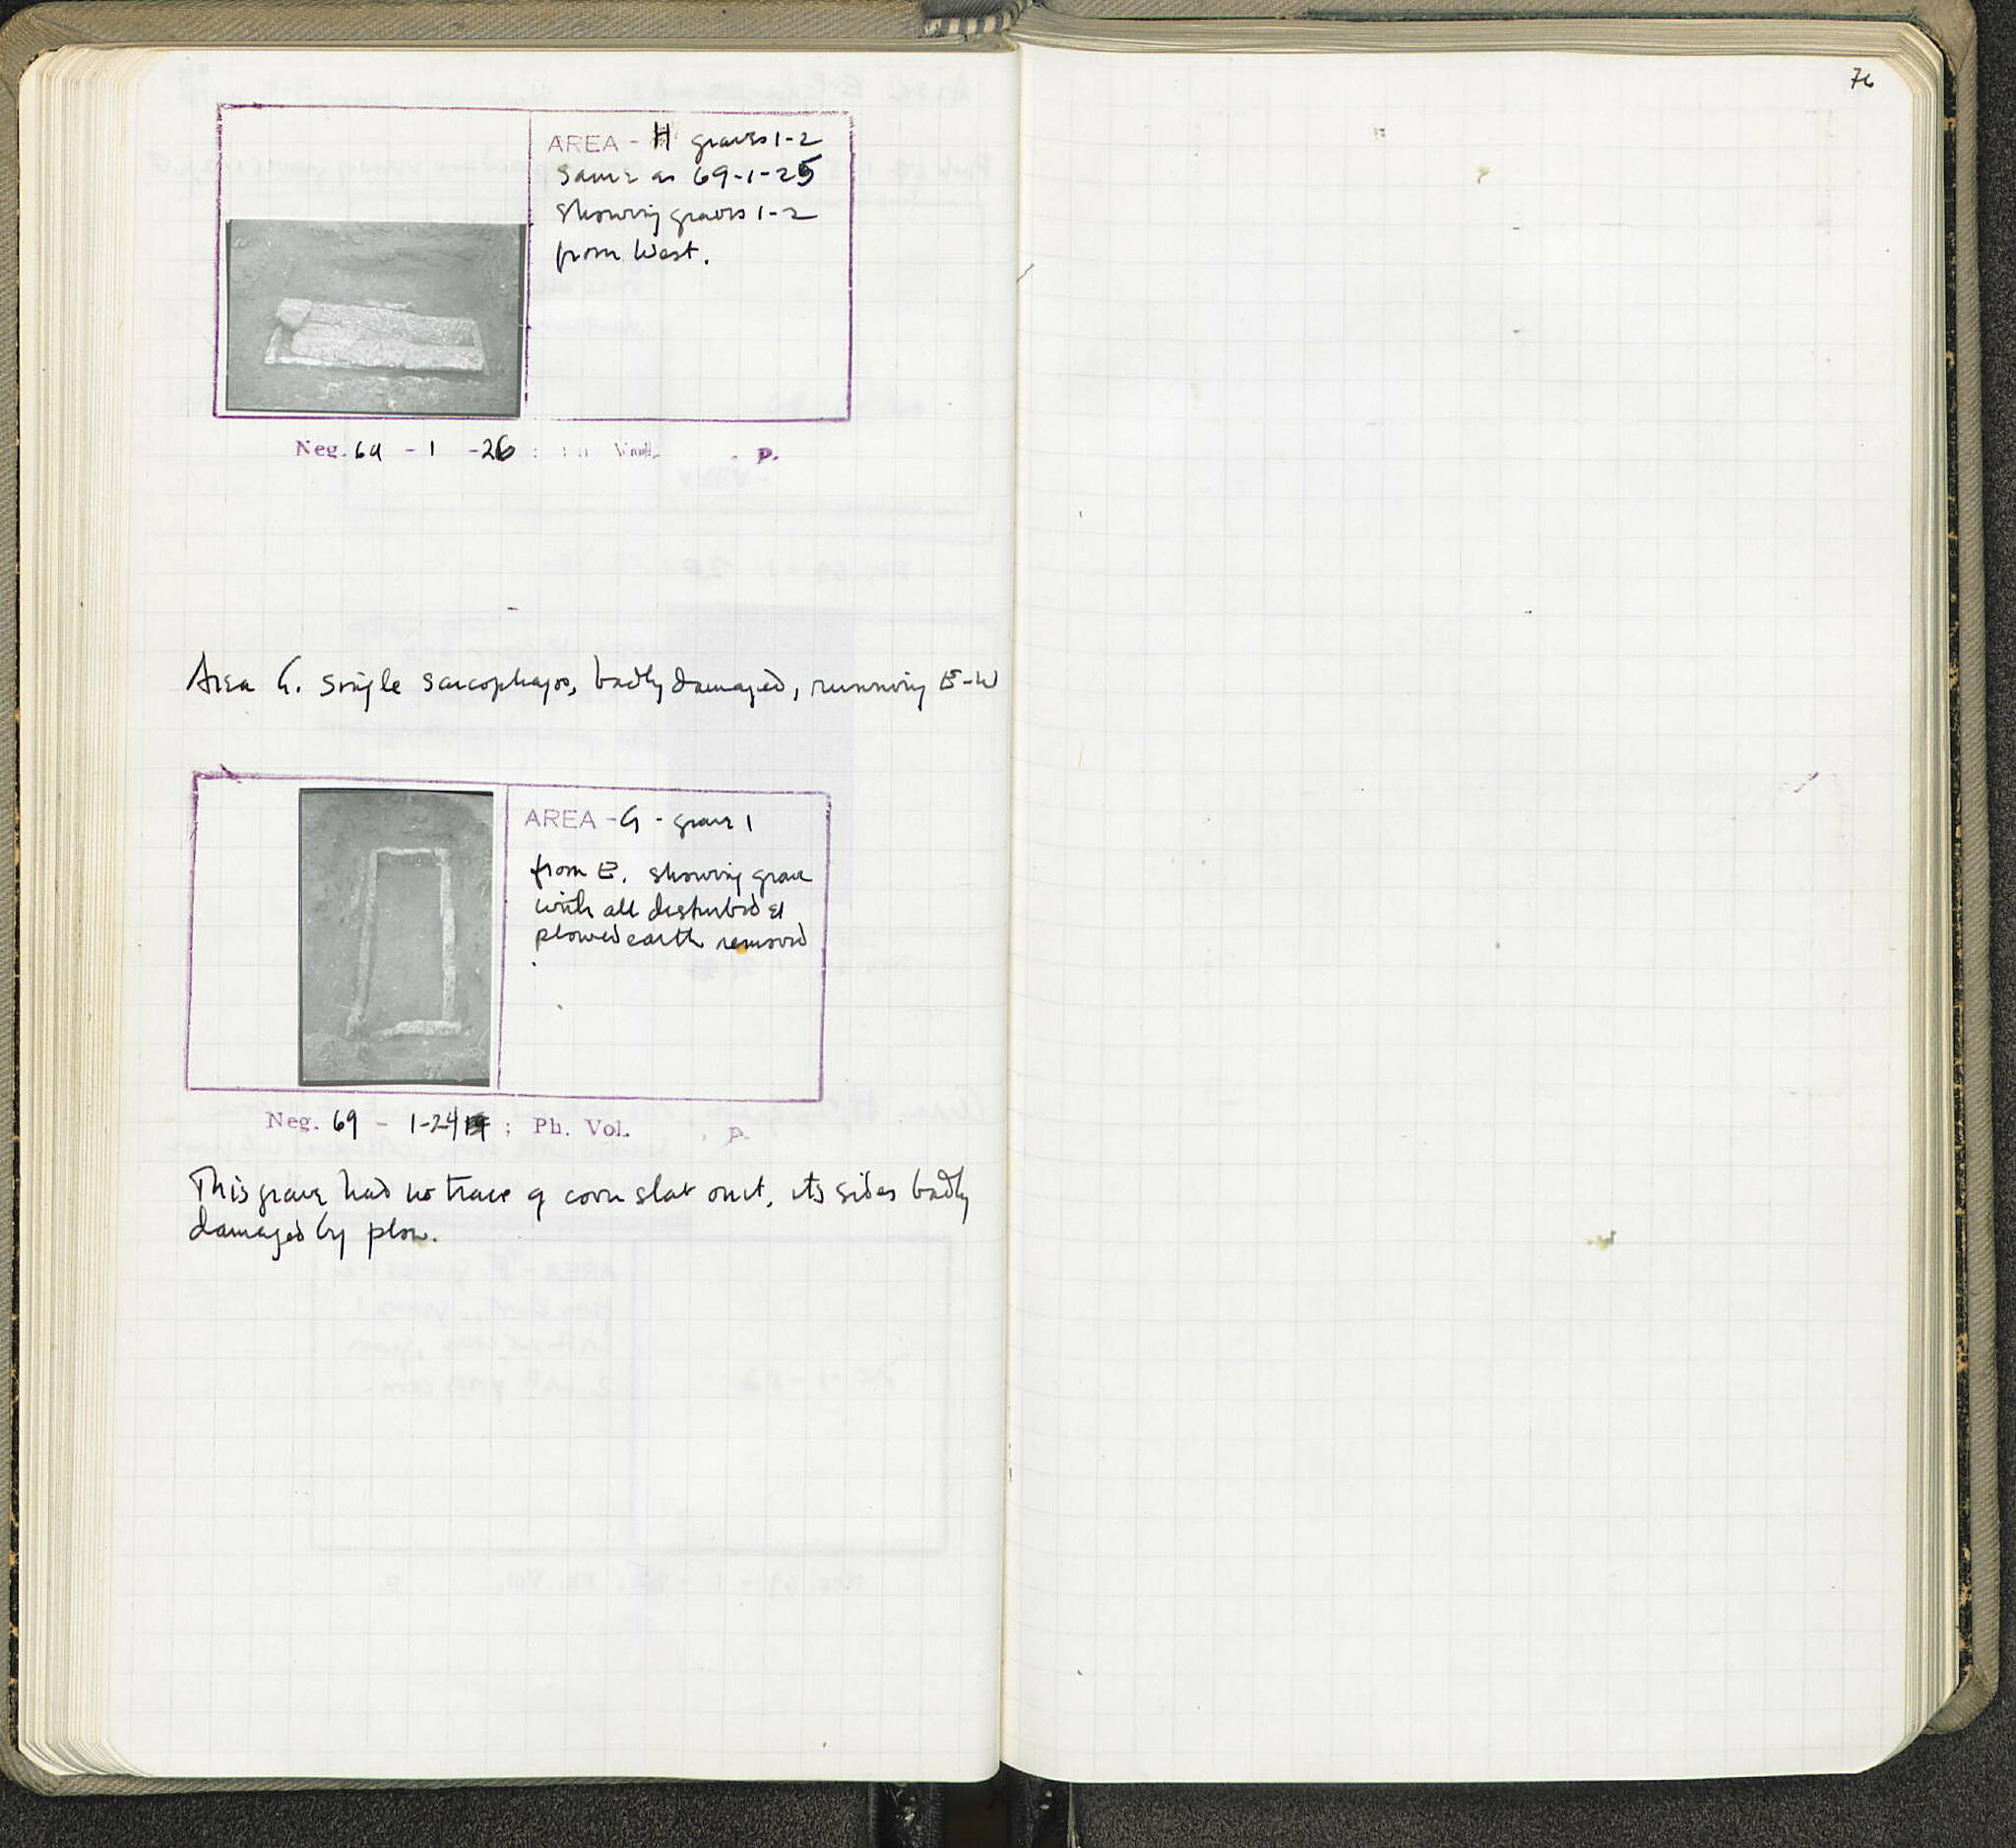 76
AREA - H graves 1-2
Same as 69-1-25
showing graves 1-2
from West.
Neg. 69 - 1 -26 : Vol. p.
Area G. Single sarcophagos, badly damaged, running E-W
AREA - G - grave 1
from E. showing grave
with all disturbed &
plowed earth removed
Neg. 69 - 1-24 ; Ph. Vol. , p.
This grave had no trace of cover slab on it, its sides badly
damaged by plow.